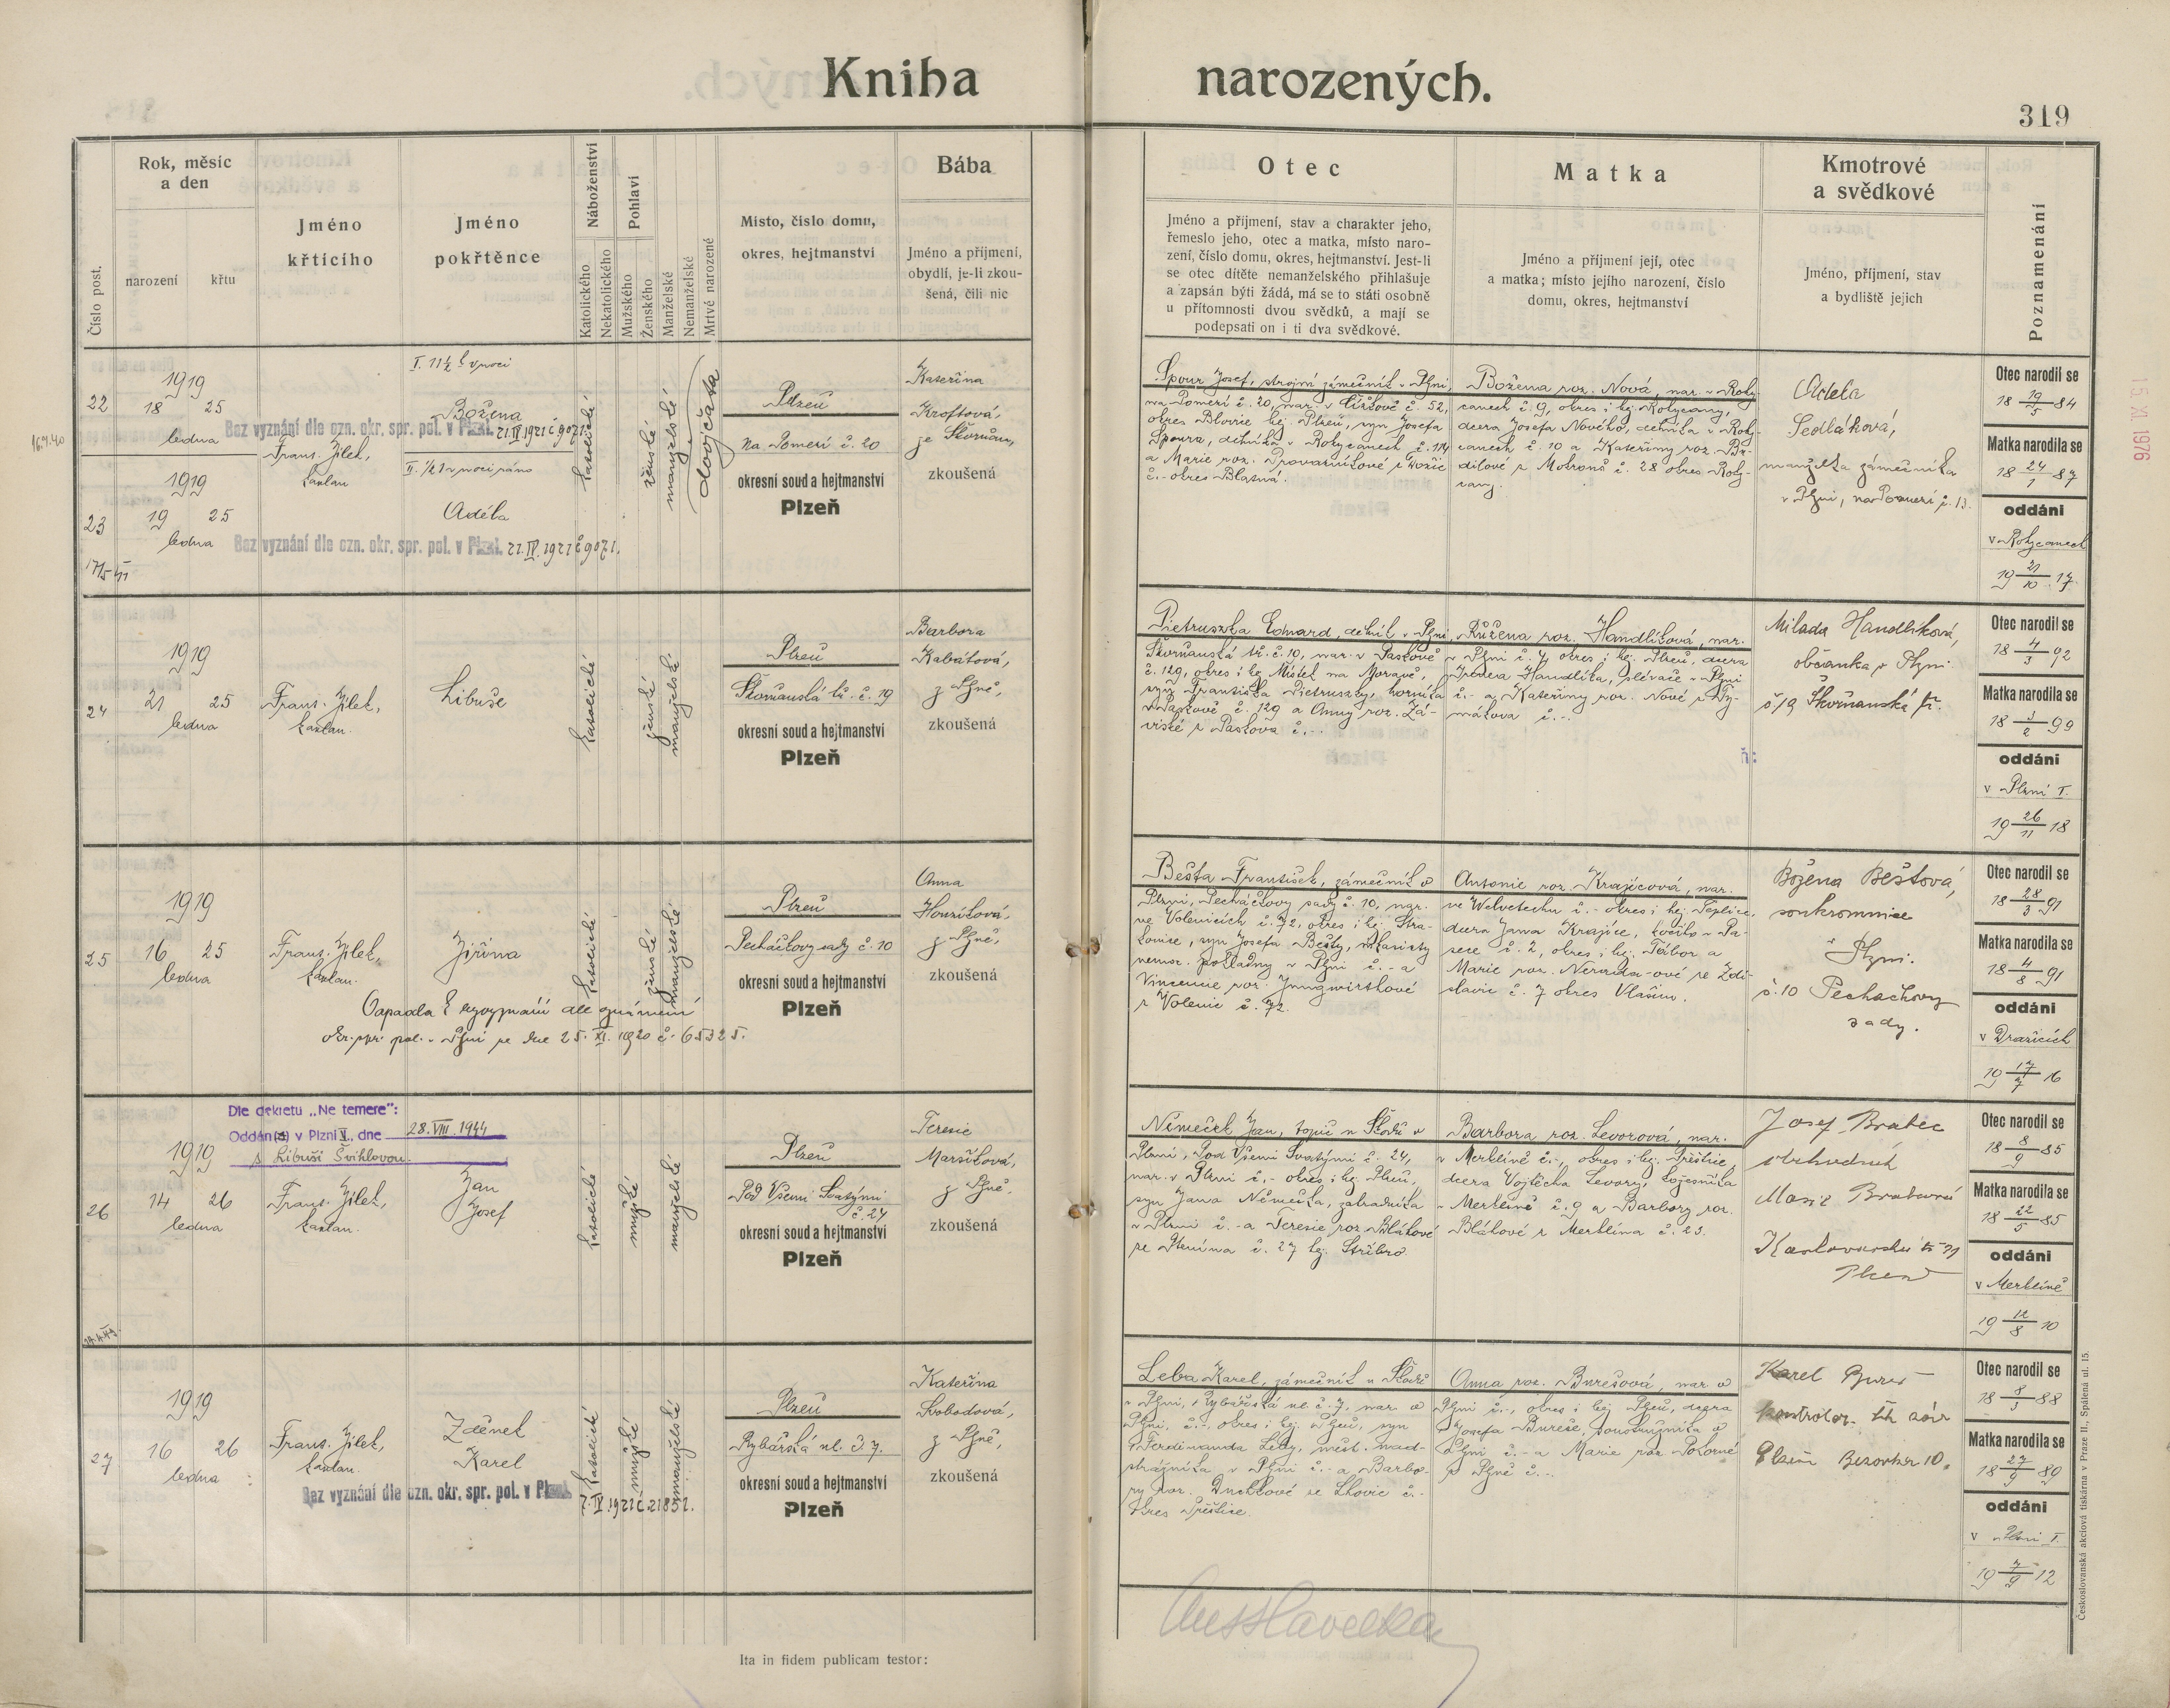 Kniha narozených.
319
Číslo post.
Rok, měsíc
a den
narození
křtu
Jméno
křtícího
Jméno
pokřtěnce
Náboženství
Katolického
Nekatolického
Pohlaví
Mužského
Ženského
Manželské
Nemanželské
Mrtvé narozené
Místo, číslo domu,
okres, hejtmanství
Bába
Jméno a příjmení,
obydlí, je-li zkou-
šená, čili nic
Otec
Jméno a příjmení, stav a charakter jeho,
řemeslo jeho, otec a matka, místo naro-
zení, číslo domu, okres, hejtmanství. Jest-li
se otec dítěte nemanželského přihlašuje
a zapsán býti žádá, má se to státi osobně
u přítomnosti dvou svědků, a mají se
podepsati on i ti dva svědkové.
Matka
Jméno a příjmení její, otec
a matka; místo jejího narození, číslo
domu, okres, hejtmanství
Kmotrové
a svědkové
Jméno, příjmení, stav
a bydliště jejich
Poznamenání
22
1919
18 25
ledna
Božena
Bez vyznání dle ozn. okr. spr. pol. v Plzni. 21.IV.1921 č 9071.
Frant. Jílek,
kaplan
23
1919
19 25
ledna
Adéla
Bez vyznání dle ozn. okr. spr. pol. v Plzni. 21.IV.1921 č 9071.
katolické
ženské
manželské
dvojčata
Plzeň
Na Pomezí č. 20
okresní soud a hejtmanství
Plzeň
Kateřina
Kroftová,
ze Skvrňan,
zkoušená
Špour Josef, strojní zámečník v Plzni
na Pomezí č. 20, nar. v Čižkově č. 52,
okres Blovice hej. Plzeň, syn Josefa
Špoura, dělníka v Rokycanech č. 114
Božena roz. Nová, nar. v Roky-
canech č. 9, okres i hej. Rokycany,
dcera Josefa Nového, dělníka v Roky-
canech č. 10 a Kateřiny roz.
Adéla
Sedláková,
manželka zámečníka
v Plzni, na Pomezí č. 13.
Otec narodil se
18 19/5 84
Matka narodila se
18 24/1 87
oddáni
v Rokycanech
19 21/10 17
15. XI. 1976
24
1919
21 25
ledna
Frant. Jílek,
kaplan.
Libuše
katolické
ženské
manželské
Plzeň
Skvrňanská tř. č. 19
okresní soud a hejtmanství
Plzeň
Barbora
Kabátová,
z Plzně,
zkoušená
Pietruszka Eduard, dělník v Plzni
Skvrňanská tř. č. 10, nar. v Paskově
č. 129, okres i hej. Místek na Moravě,
syn Františka Pietruszky, horníka
v Paskově č. 129 a Anny roz. Zá-
viské z Paskova č. -.
Růžena roz. Handlíková, nar.
v Plzni č. 4, okres i hej. Plzeň, dcera
Milada Handlíková,
občanka v Plzni
č 19 Skvrňanská tř.
Otec narodil se
18 4/3 92
Matka narodila se
18 3/2 99
oddáni
v Plzni I.
19 26/11 18
25
1919
16 25
ledna
Frant. Jílek,
kaplan.
Jiřina
katolické
ženské
manželské
okr. spr. pol. v Plzni ze dne 25. XI. 1920 č. 65325.
Plzeň
Pecháčkovy sady č. 10
okresní soud a hejtmanství
Plzeň
Anna
Houzíková,
z Plzně,
zkoušená
Bešta František, zámečník v
Plzni, Pecháčkovy sady č. 10, nar.
ve Volenicích č. 72, okres i hej. Stra-
konice, syn Josefa Bešty,
nemoc. pokladny v Plzni č. - a
Vincencie roz. Jungwirthové
z Volenic č. 72.
Antonie roz. Krajícová, nar.
ve Welvetechu č. - okres i hej. Teplice,
dcera Jana Krajíce, kočího v Pa-
sece č. 2, okres i hej. Tábor a
Marie roz. ze Zdi-
slavic č. 7 okres Vlašim.
Božena Beštová,
soukromnice
v Plzni.
č. 10 Pecháčkovy
sady.
Otec narodil se
18 28/3 91
Matka narodila se
18 4/8 91
oddáni
v Dražicích
19 17/7 16
Dle dekretu „Ne temere“:
Oddán(a) v Plzni V., dne 28. VIII. 1944
s Libuší Švihlovou.
26
1919
14 26
ledna
Frant. Jílek,
kaplan.
Jan
Josef
katolické
mužské
manželské
Plzeň
Pod Všemi Svatými
č. 24
okresní soud a hejtmanství
Plzeň
Terezie
Maršíková,
z Plzně,
zkoušená
Němeček Jan, topič u Škodů v
Plzni, Pod Všemi Svatými č. 24,
nar. v Plzni č. - okres i hej. Plzeň,
syn Jana Němečka, zahradníka
v Plzni č. - a Terezie roz. Blahové
ze č. 27 hej. Stříbro.
Barbora roz. Levorová, nar.
v Merklíně č. -, okres i hej. Přeštice,
dcera Vojtěcha Levory,
v Merklíně č. 9 a Barbory roz.
Bláhové z Merklína č. 23.
Josef Brabec
obchodník
Marie Brabcová
Karlovarská tř
Plzeň
Otec narodil se
18 8/9 85
Matka narodila se
18 22/5 85
oddáni
v Merklíně
19 12/8 10
27
1919
16 26
ledna
Frant. Jílek,
kaplan.
Zdeněk
Karel
Bez vyznání dle ozn. okr. spr. pol. v Plzni.
katolické
mužské
manželské
Plzeň
Rybářská ul. č. 7.
okresní soud a hejtmanství
Plzeň
Kateřina
Svobodová,
z Plzně,
zkoušená
Leba Karel, zámečník u Škodů
v Plzni, Rybářská ul. č. 7, nar. v
Plzni, č. - okres i hej. Plzeň, syn
Ferdinanda Leby, měst. nad-
strážníka v Plzni č. - a Barbo-
ry roz. Duchkové ze Lhovic č. -
okres Přeštice.
Anna roz. Burešová, nar. v
Plzni č. -, okres i hej. Plzeň, dcera
Josefa Bureše, soustružníka v
Plzni č. - a Marie roz. Pokorné
z Plzně č. -.
Karel Bureš
Plzeň 10.
Otec narodil se
18 8/3 88
Matka narodila se
18 27/9 89
oddáni
v Plzni I.
19 7/9 12
Ita in fidem publicam testor:
Českoslovanská akciová tiskárna v Praze II., Spálená ul. 15.